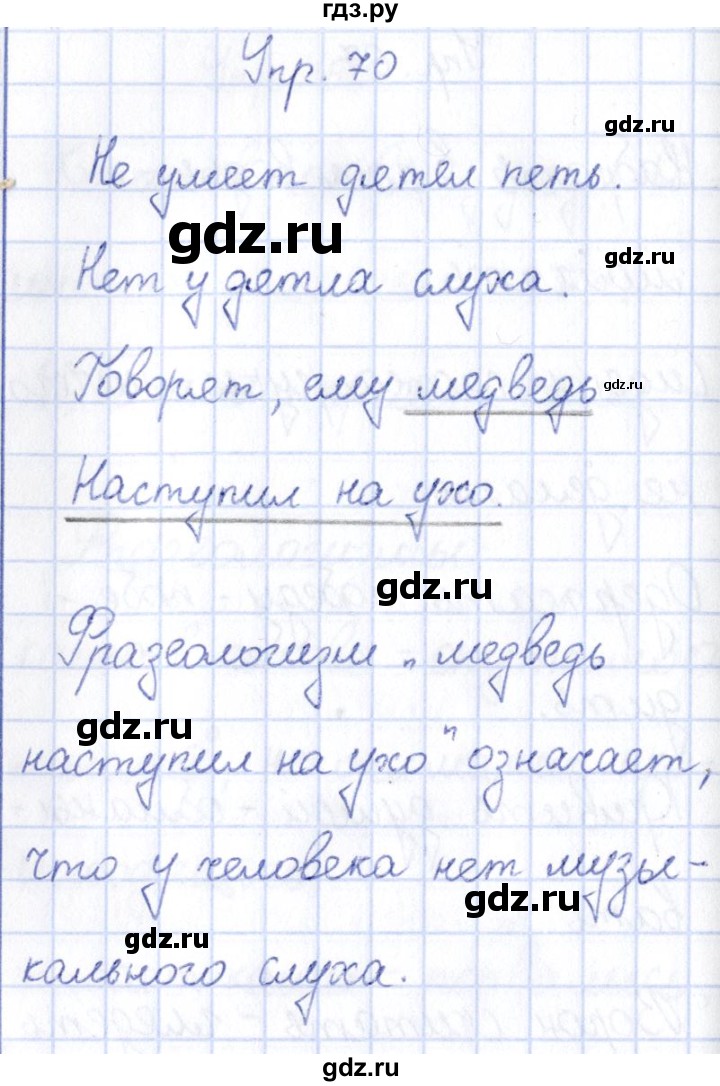 гдз.ру
Упр. 70
gdz.ru
Не умеет дятел петь.
gdz.ru
gdz.ru
Нет у дятла слуха.
Говорят, ему медведь
gdz.ru
Наступил на ухо.
gdz.ru
Фразеологизм „медведь
gdz.ru
наступил на ухо" означает,
что у человека нет музы-
gdz.ru
gdz.ru
кального слуха.
gdz.ru